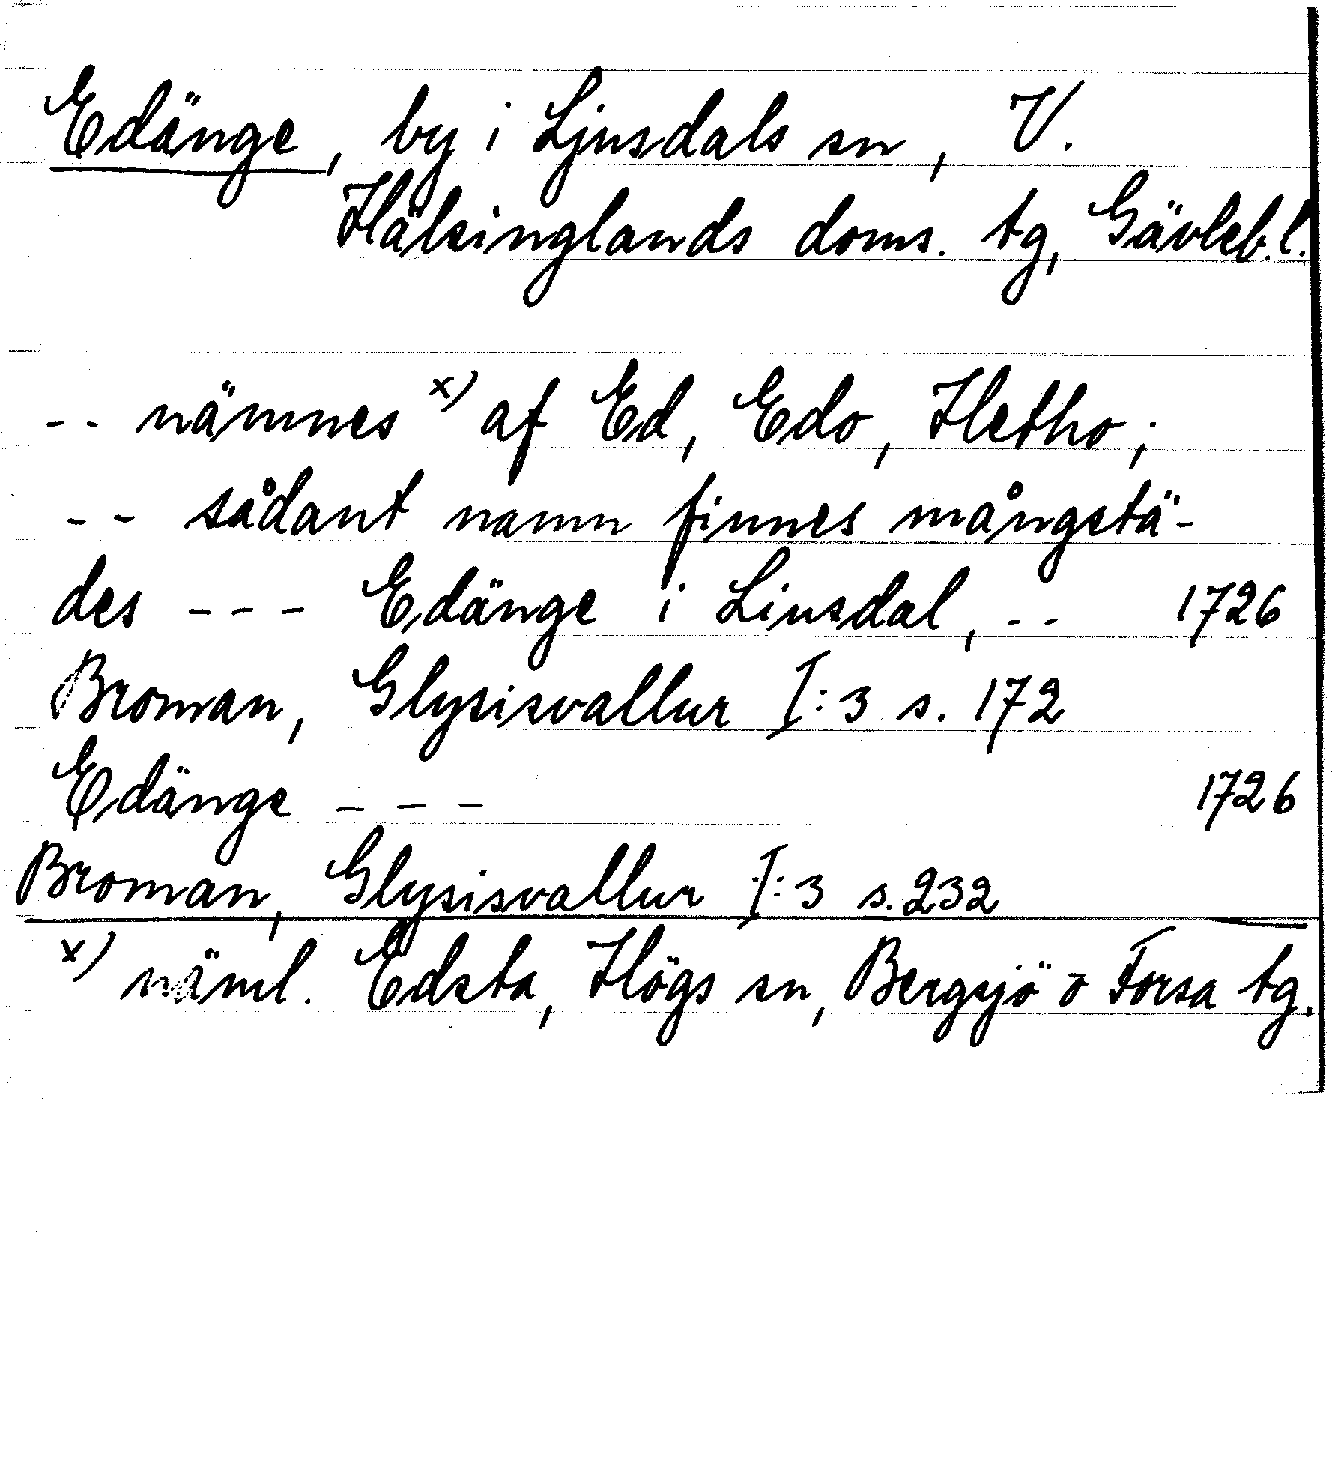 Edänge, by i Ljusdals sn, V.
Hälsinglands doms. tg, Gävleb.l.
-- nämnes x) af Ed, Edo, Hetho;
-- sådant namn finnes mångstä-
des --- Edänge i Liusdal, -- 1726
Broman, Glysisvallur I:3 s. 172
Edänge --- 1726
Broman, Glysisvallur I:3 s. 232
x) näml. Edsta, Högs sn, Bergsjö o Forsa tg.